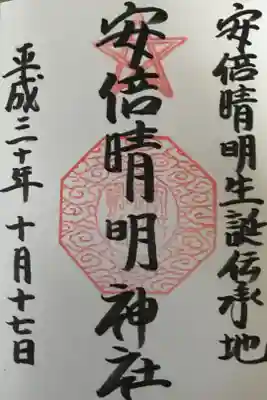 安倍晴明生誕伝承地
安倍晴明神社
平成三十年十月十七日